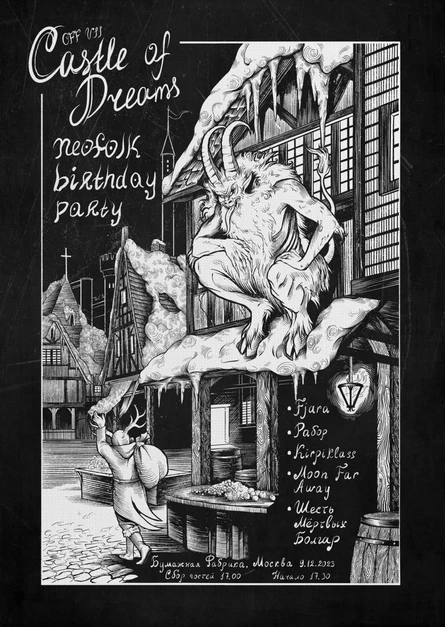 Castle of
Dreams
neofolk
birthday
party
• Fjara
• Рабор
• Kirpiklass
• Moon Far
Away
• Шесть
Мёртвых
Болгар
Бумажная Фабрика, Москва 9.12.2023
Сбор гостей 17.00 Начало 17.30